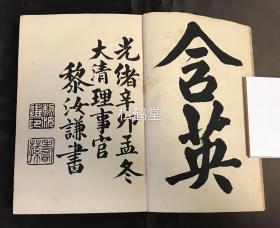 含英
光緒辛卯孟冬
大清理事官
黎汝謙書
松鹤堂